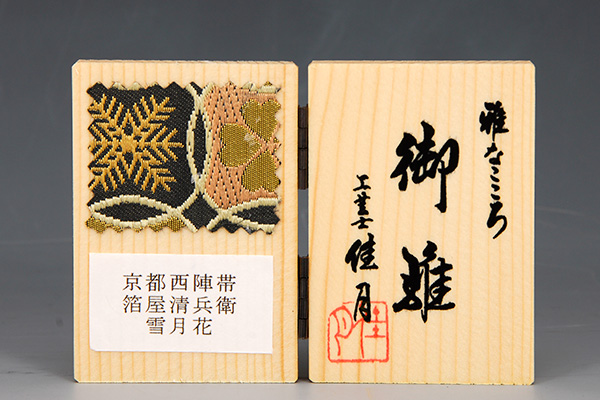 京都西陣帯
箔屋清兵衛
雪月花
雅なこころ
御雛
工芸士 佳月